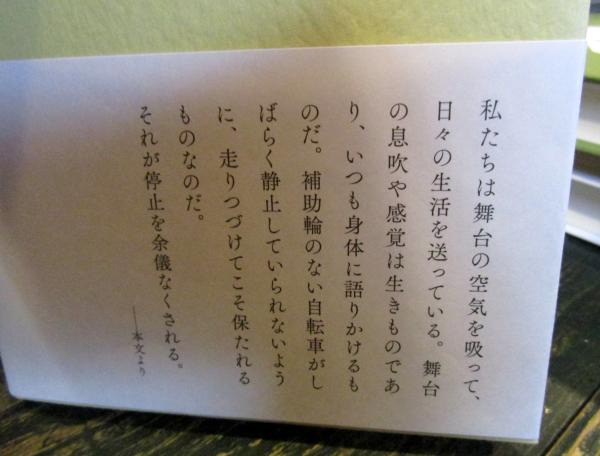 私たちは舞台の空気を吸って、
日々の生活を送っている。舞台
の息吹や感覚は生きものであ
り、いつも身体に語りかけるも
のだ。補助輪のない自転車がし
ばらく静止していられないよう
に、走りつづけてこそ保たれる
ものなのだ。
それが停止を余儀なくされる。
――本文より